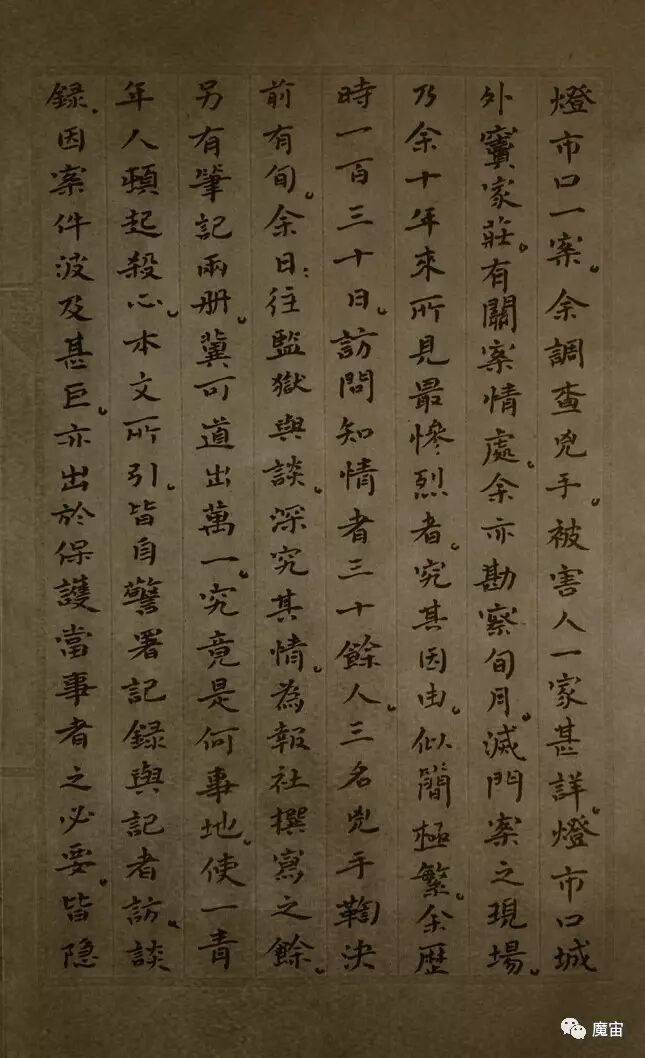 燈市口一案。余調查兇手。被害人一家甚詳。燈市口城
外竇家莊。有關案情處。余亦勘察旬月。滅門案之現場。
乃余十年來所見最慘烈者。究其因由。似簡極繁。余歷
時一百三十日。訪問知情者三十餘人。三名兇手鞫決
前有旬。余日：往監獄與談。深究其情。為報社撰寫之餘。
另有筆記兩册。冀可道出萬一。究竟是何事地。使一青
年人頓起殺心。本文所引。皆自警署記録與記者訪談
録。因案件波及甚巨。亦出於保護當事者之必要。皆隐
魔宙